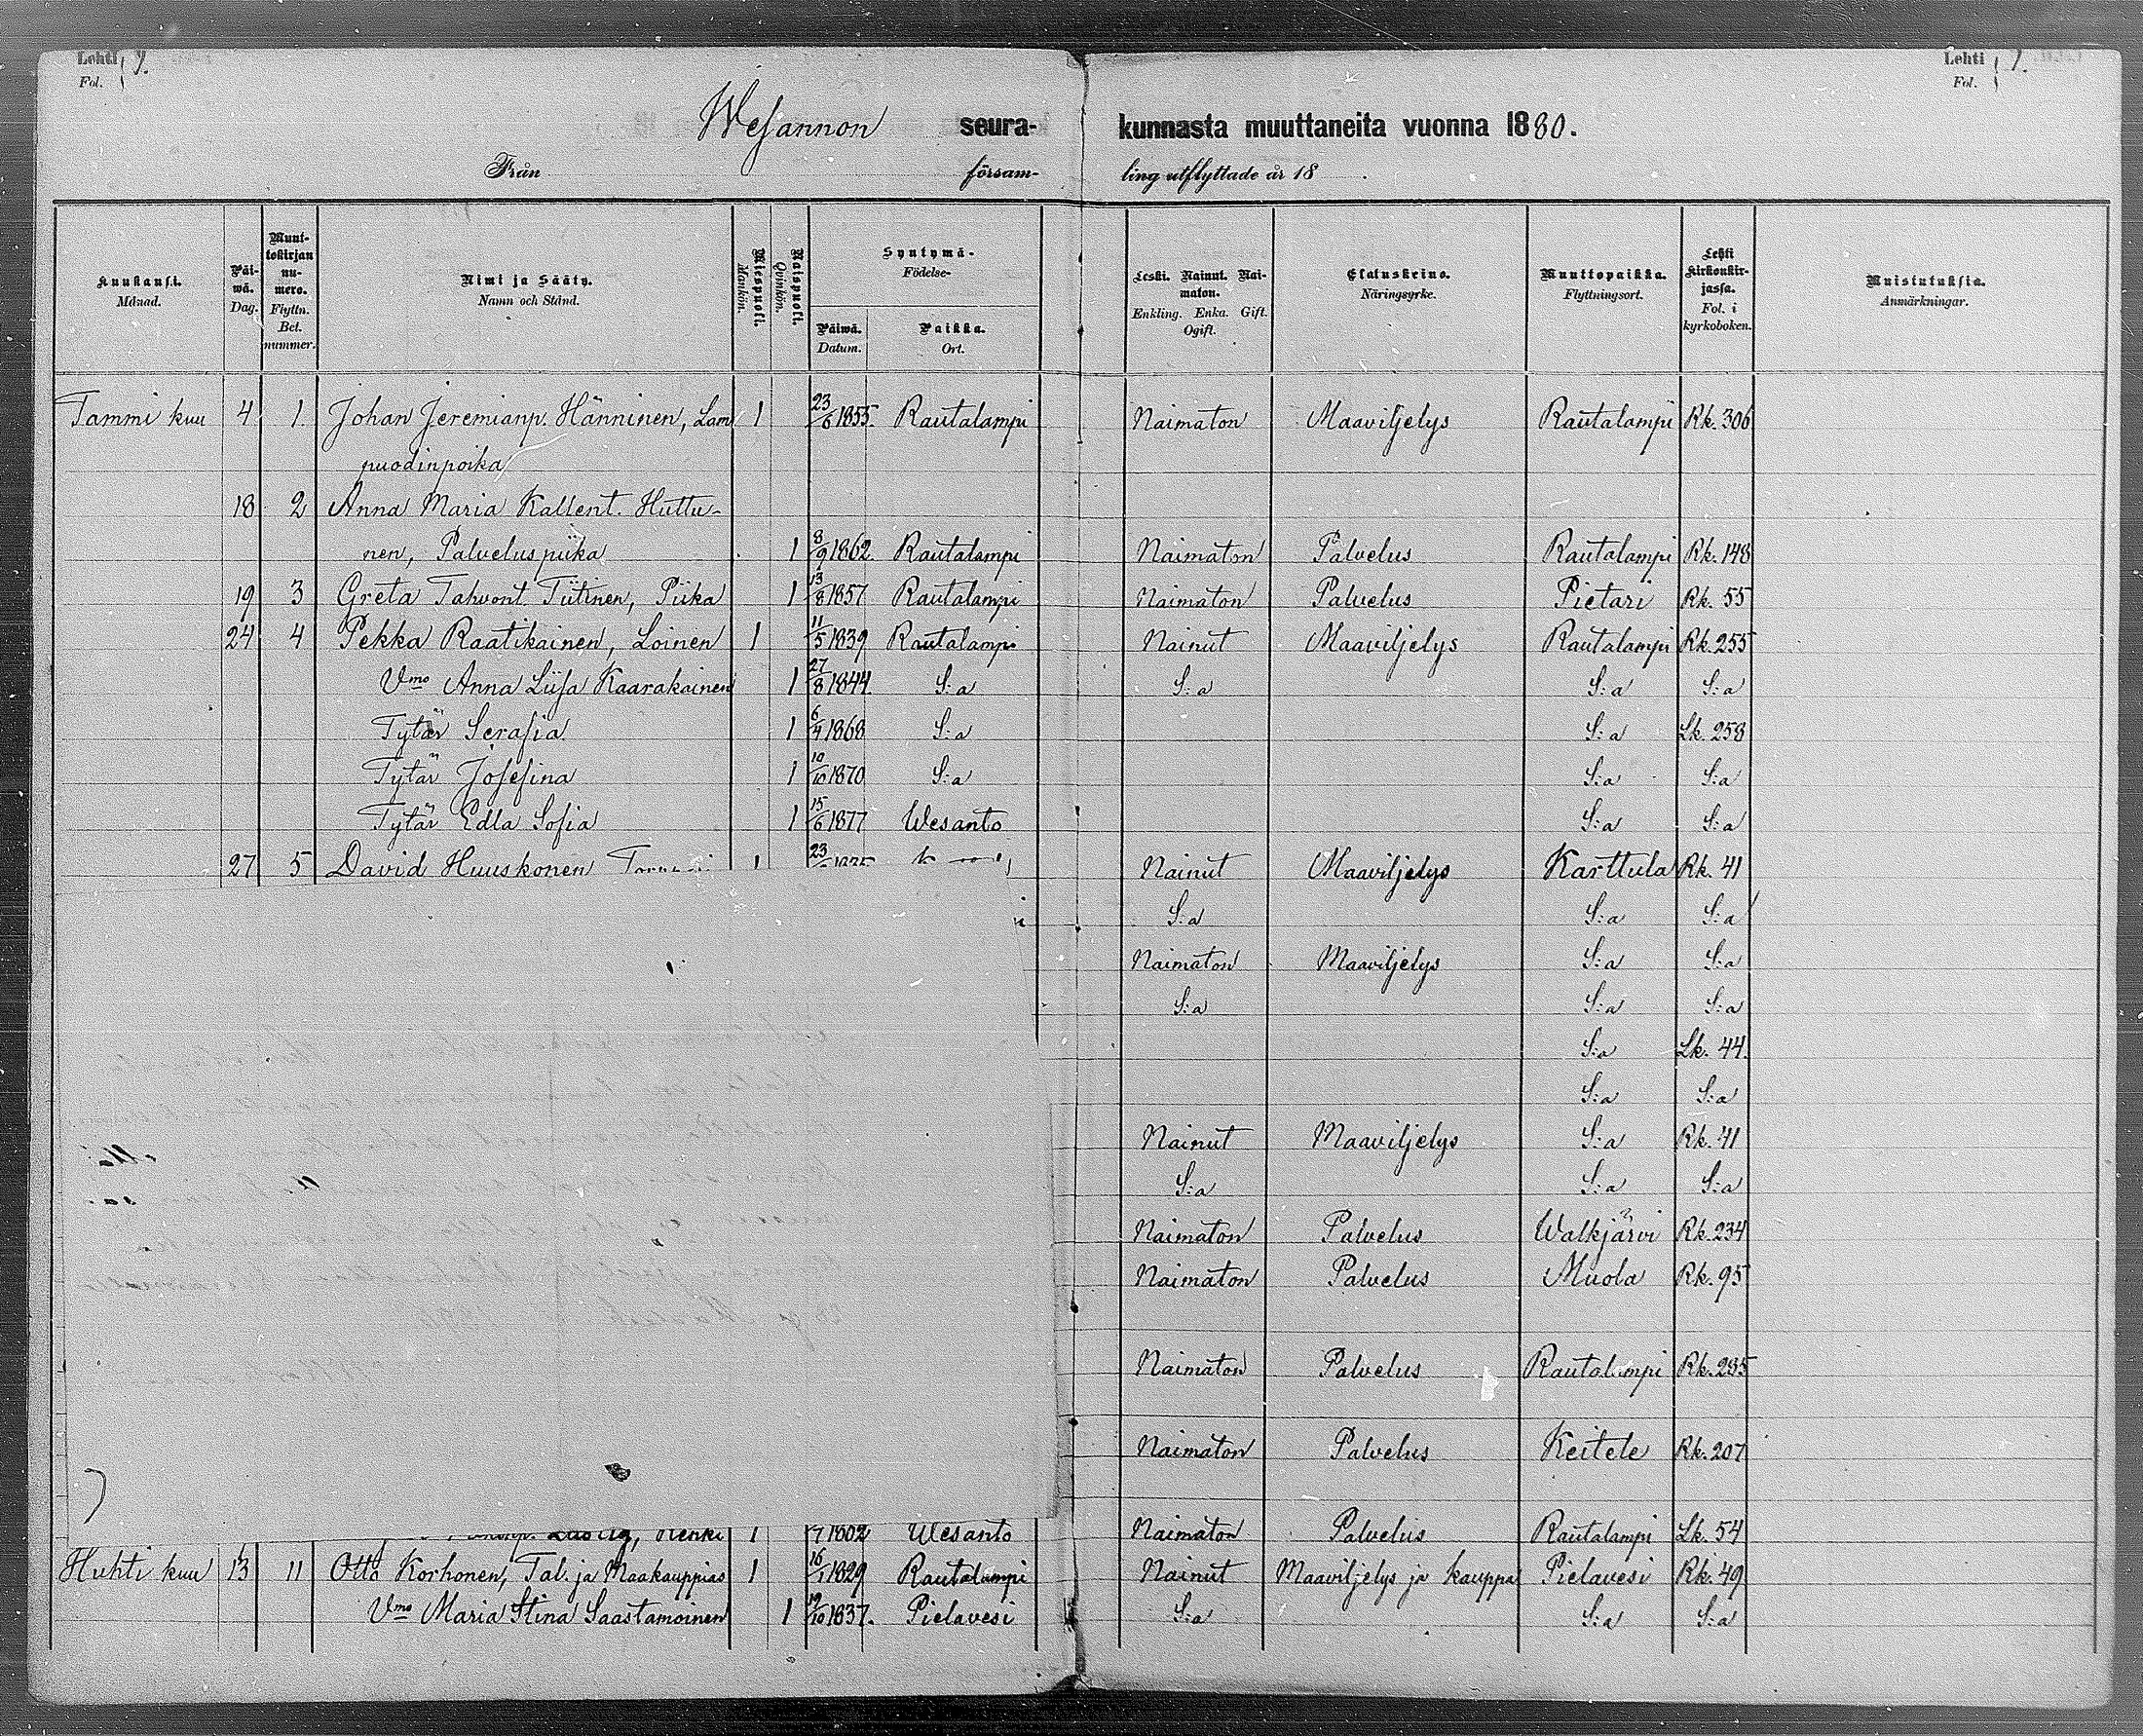 Lehti
Fol.
Lehti
Fol.
Wesannon seura- kunnasta muuttaneita vuonna 1880.
Från försam- ling utflyttade år 18 .
Kuukausi.
Månad.
Päi-
wä.
Dag.
Muut-
tokirjan
nu-
mero.
Flyttn.
Bet.
nummer.
Nimi ja Sääty.
Namn och Stånd.
Miespuoli.
Mankön.
Naispuoli.
Qvinkön.
Syntymä-
Födelse-
Päiwä.
Datum.
Paikka.
Ort.
Leski. Nainut. Nai-
maton.
Enkling. Enka. Gift.
Ogift.
Elatuskeino.
Näringsyrke.
Muuttopaikka.
Flyttningsort.
Lehti
Kirkonkir-
jassa.
Fol. i
kyrkoboken.
Muistutuksia.
Anmärkningar.
Tammi kuu 4 1. Johan Jeremianp. Hänninen, Lam 1 23/6 1855. Rautalampi Naimaton Maaviljelys Rautalampi Rk. 306
puodinpoika
18 2 Anna Maria Kallent. Huttu-
nen, Palveluspiika 1 8/9 1862 Rautalampi Naimaton Palvelus Rautalampi Rk. 148
19 3 Greta Tahvont. Tiitinen, Piika 1 13/8 1857 Rautalampi Naimaton Palvelus Pietari Rk. 55
24 4 Pekka Raatikainen, Loinen 1 11/5 1839 Rautalampi Nainut Maaviljelys Rautalampi Rk. 255
Vmo Anna Liisa Kaarakainen 1 27/8 1844 S:a S:a S:a S:a
Tytär Serafia 1 6/4 1868 S:a S:a Lk. 258
Tytär Josefina 1 10/10 1870 S:a S:a S:a
Tytär Edla Sofia 1 15/6 1877 Wesanto S:a S:a
27 5 David Huuskonen 1 23 Nainut Maaviljelys Karttula Rk. 41
S:a S:a S:a
Naimaton Maaviljelys S:a S:a
S:a S:a S:a
S:a Lk. 44.
S:a S:a
Nainut Maaviljelys S:a Rk. 41
S:a S:a S:a
Naimaton Palvelus Walkjärvi Rk. 234
Naimaton Palvelus Muola Rk. 95
Naimaton Palvelus Rautalampi Rk. 235
Naimaton Palvelus Keitele Rk. 207
Renki 1 Wesanto Naimaton Palvelus Rautalampi Lk. 54
Huhti kuu 13 11 Otto Korhonen, Tal. ja Maakauppias 1 16/1 1829 Rautalampi Nainut Maaviljelys ja kauppa Pielavesi Rk. 49
Vmo Maria Stina Saastamoinen 1 19/10 1837. Pielavesi S:a S:a S:a